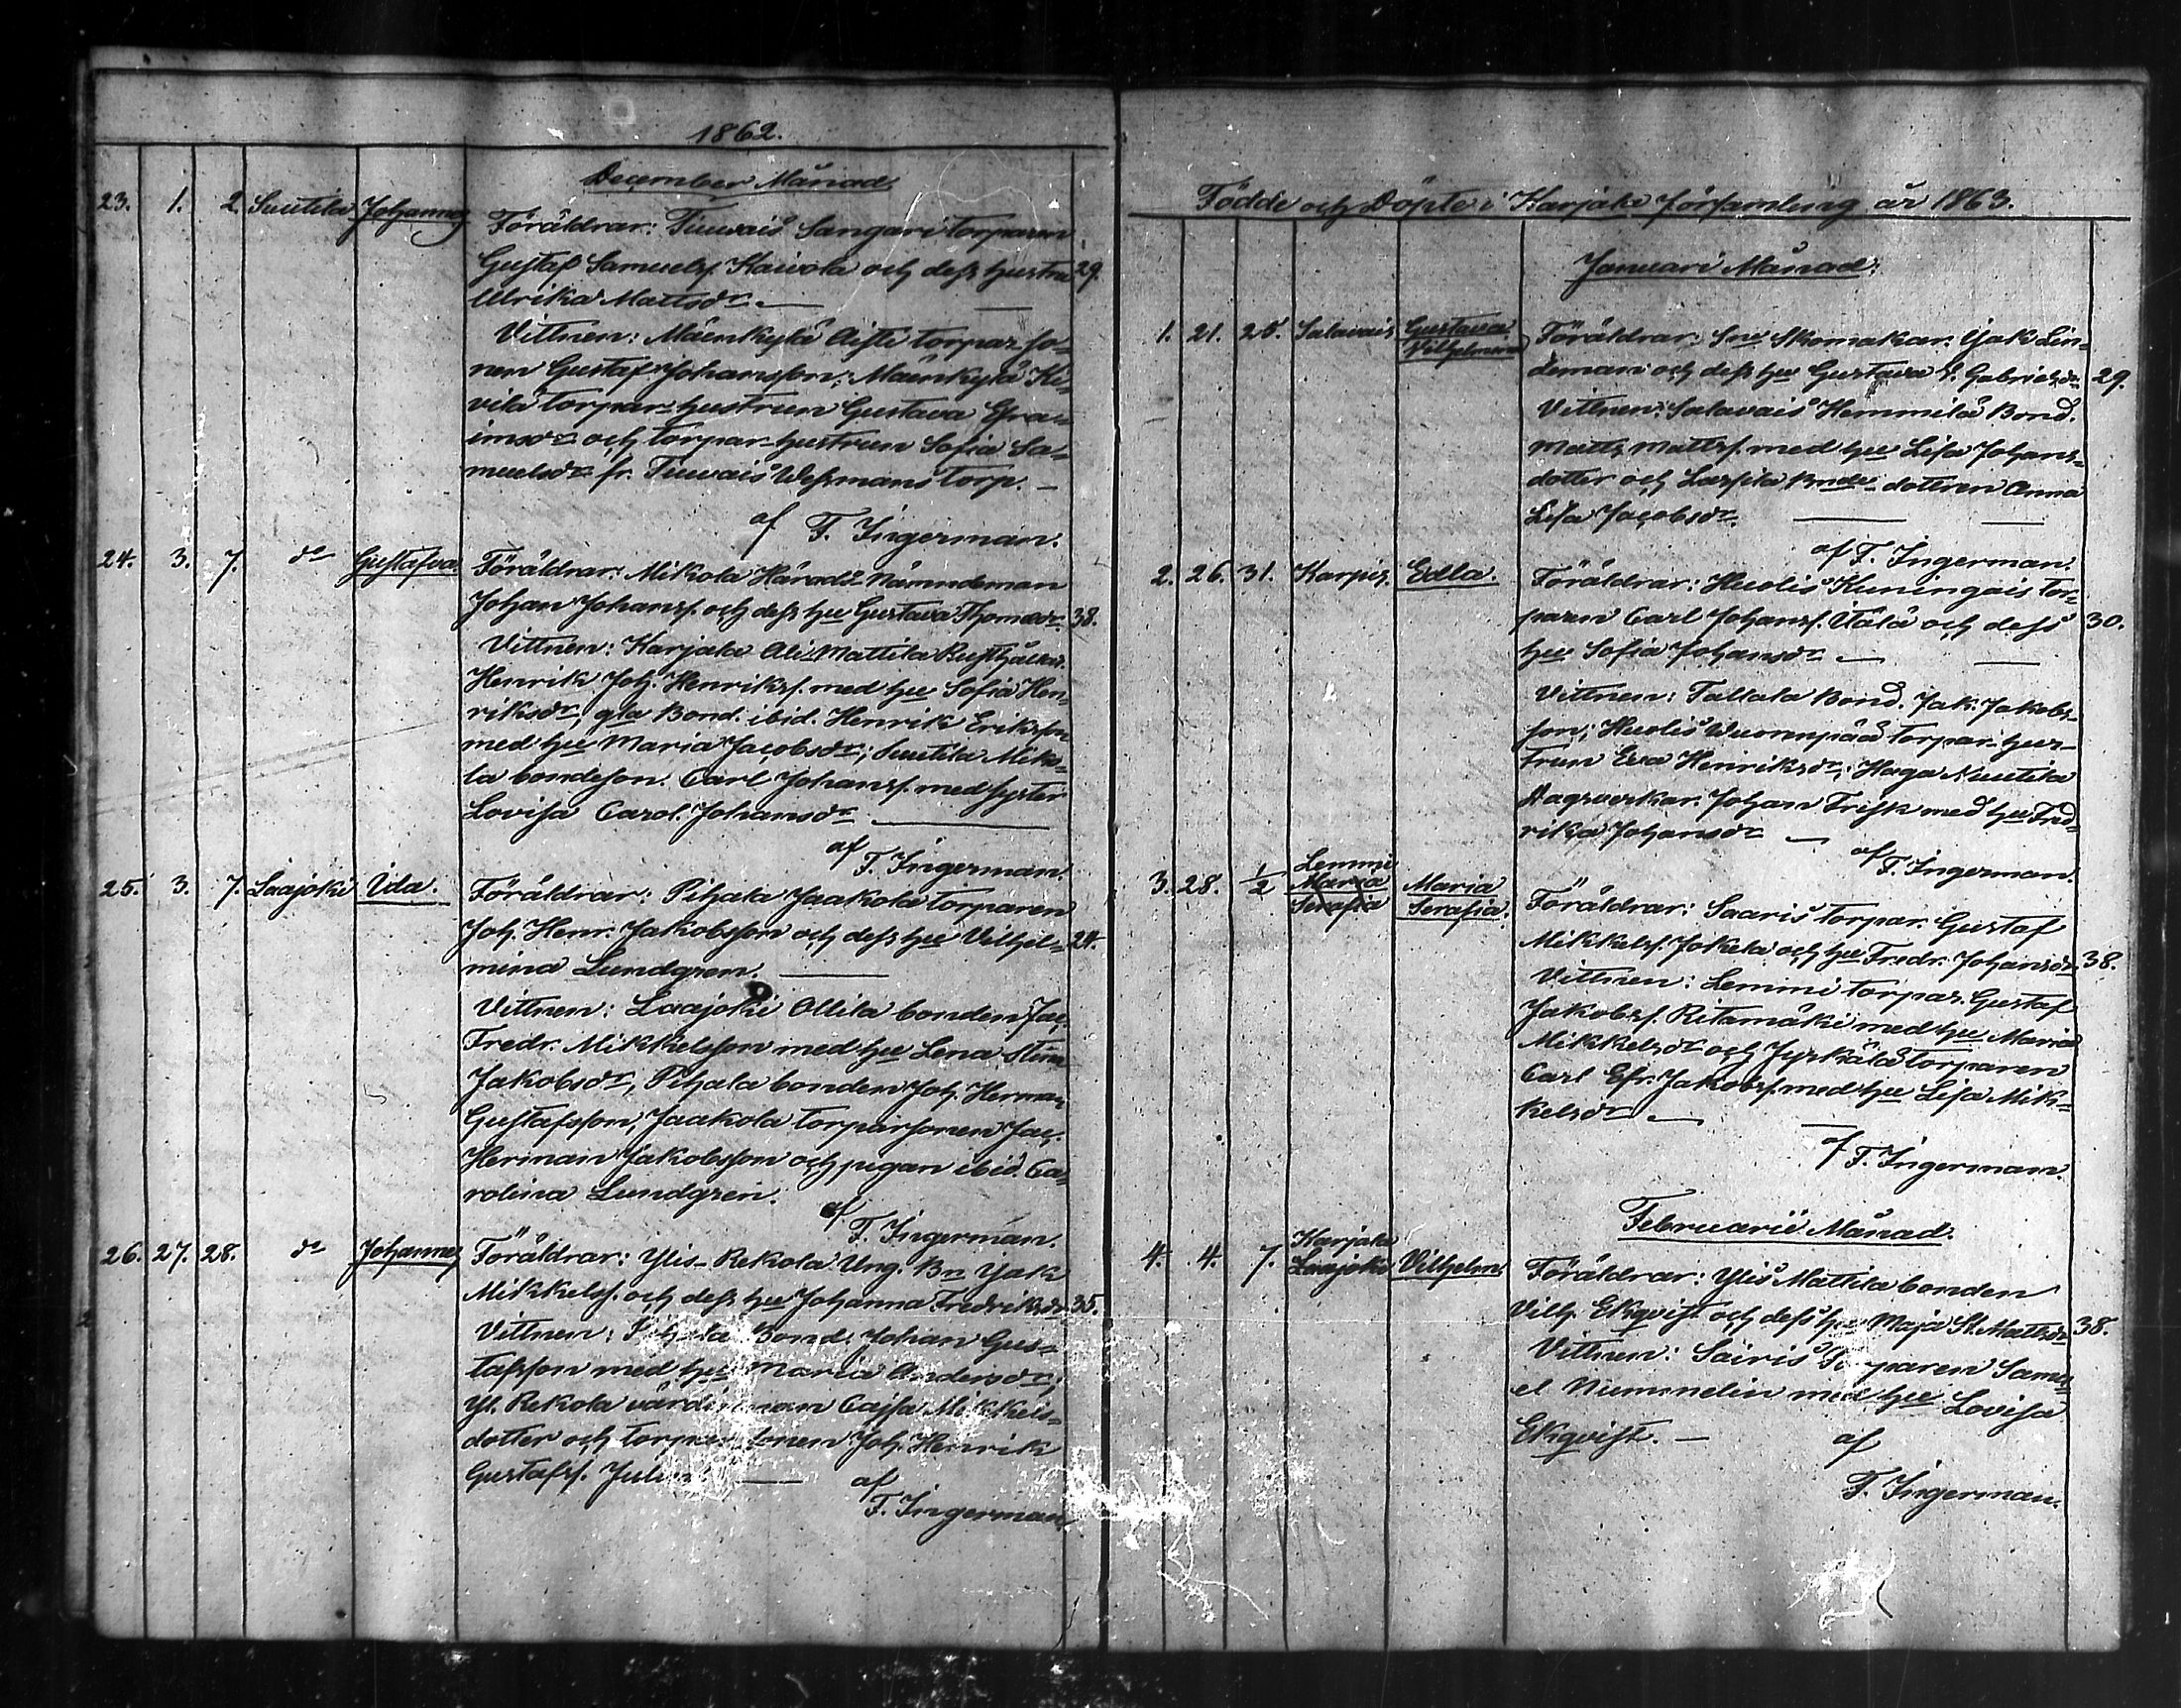 1862.
December Månad.
23. 1. 2. Suutila Johannes Föräldrar: Tiuvais Sangari torparen
Gustaf Samuelss. Kaivola och dess hustru 29.
Ulrika Mattsdr. —
Vittnen: Mäenkylä Aiste torpar-so-
nen Gustaf Johansson; Mäenkylä Ki-
vilä torpar-hustrun Gustava Efra-
imsdr och torpar-hustrun Sofia Sa-
muelsdr fr. Tiuvais Wessmans torp. —
af F. Ingerman.
24. 3. 7. do Gustafva Föräldrar: Mikola Härads Nämndeman
Johan Johanss. och dess hu Gustava Thomasdr 38.
Vittnen: Karjala Ali-Mattila Rusthållar.
Henrik Joh. Henrikss. med hu Sofia Hen-
riksdr; gla Bond. ibid. Henrik Eriksson
med hu Maria Jacobsdr; Suutila Miko-
la bondeson. Carl Johanss. med syster
Lovisa Carol. Johansdr —
af
F. Ingerman.
25. 3. 7. Laajoki Ida. Föräldrar: Pihala Jaakola torparen
Joh. Henr. Jakobsson och dess hu Vilhel- 24.
mina Lundgren. —
Vittnen: Laajoki Ollila bonden Jac.
Fredr. Mikkelsson med hu Lena Stina
Jakobsdr, Pihala bonden Joh. Herman
Gustafsson; Jaakola torparsonen Jac.
Herman Jakobsson och pigan ibid. Ca-
rolina Lundgren.
af
F. Ingerman.
26. 27. 28. do Johannes Föräldrar: Ylis-Rekola Ung. Bn Isak
Mikkelss. och dess hu Johanna Fredriksdr 35.
Vittnen: Bond. Johan Gus-
tafsson med hu Maria Andersdr;
Yl. Rekola Cajsa Mikkels-
dotter och Joh. Henrik
Gustafss. —
af
F. Ingerman.
Födde och Döpte i Karjala församling år 1863.
Januari Månad.
1. 21. 25. Salavais Gustava Vilhelmina Föräldrar: Sne Skomakar. Isak Lin-
deman och dess hu Gustava S. Gabrielsdr 29.
Vittnen: Salavais Hemmilä Bond.
Matts Mattss. med hu Lisa Johans-
dotter och Lassila Bnde dottren Anna
Lisa Jacobsdr. —
af F. Ingerman.
2. 26. 31. Karpis. Edla. Föräldrar: Huolis Kuningais tor-
paren Carl Johanss. Itälä och dess 30.
hu Sofia Johansdr —
Vittnen: Tallala Bond. Jak. Jakobs-
son; Huolis Wuorenpää torpar-hus-
trun Eva Henriksdr; Haga Nuutila
Dagsverkar. Johan Frisk med hu Fred-
rika Johansdr —
af
F. Ingerman.
3. 28. 1/2 Lemmi Maria Serafia Maria Serafia. Föräldrar: Saaris torpar. Gustaf
Mikkelss. Jokela och hu Fredr. Johansdr 38.
Vittnen: Lemmi torpar. Gustaf
Jakobss. Ritamäki med hu Maria
Mikkelsdr och Jyrkälä torparen
Carl Efr. Jakobss. med hu Lisa Mik-
kelsdr —
af F. Ingerman.
Februarii Månad.
4. 4. 7. Karjala Laajoki Vilhelm. Föräldrar: Ylis Mattila bonden
Vilh. Ekqvist och dess hu Maja St. Mattsdr 38.
Vittnen: Sairis Samu-
el Nummelin med hu Lovisa
Ekqvist. —
af
F. Ingerman.